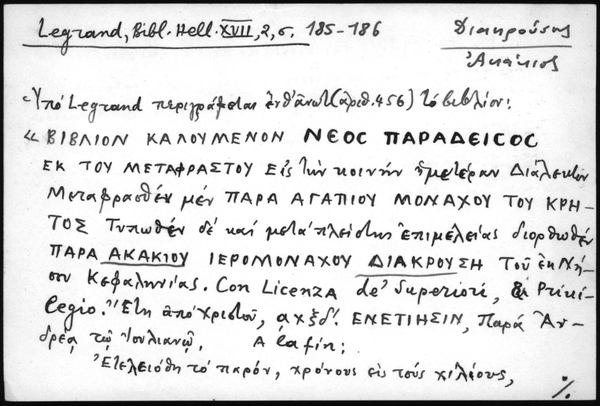 Legrand, Bibl. Hell. XVII, 2, σ. 185-186
Διακρούσης
Ἀκάκιος
Ὑπό Legrand περιγράφεται ἐνθ' ἀνωτ. (ἀριθ. 456) τό βιβλίον:
« ΒΙΒΛΙΟΝ ΚΑΛΟΥΜΕΝΟΝ ΝΕΟΣ ΠΑΡΑΔΕΙCΟC
ΕΚ ΤΟΥ ΜΕΤΑΦΡΑΣΤΟΥ Εἰς τὴν κοινὴν ἡμετέραν Διάλεκτον
Μεταφρασθέν μέν ΠΑΡΑ ΑΓΑΠΙΟΥ ΜΟΝΑΧΟΥ ΤΟΥ ΚΡΗ-
ΤΟΣ Τυπωθέν δέ καί μετά πλείστης ἐπιμελείας διορθωθέν
ΠΑΡΑ ΑΚΑΚΙΟΥ ΙΕΡΟΜΟΝΑΧΟΥ ΔΙΑΚΡΟΥΣΗ Τοῦ ἐκ Νή-
σου Κεφαληνίας. Con Licenza de' Superiori, & Privi-
legio. Ἔτη ἀπό Χριστοῦ, αχξδ'. ΕΝΕΤΙΗΣΙΝ, Παρά Ἀν-
δρέᾳ τῷ Ἰουλιανῷ. A la fin:
Ἐτελειόθη τό παρόν, χρόνους εἰς τούς χιλίους,
%